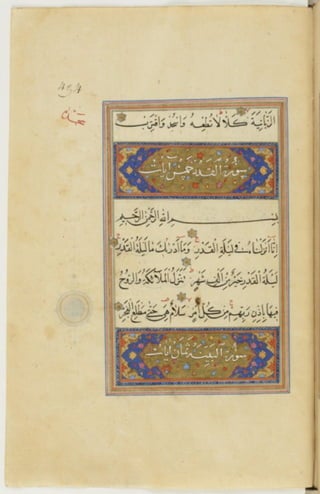 الزَّبَانِيَةَ كَلَّا لَا تُطِعْهُ وَاسْجُدْ وَاقْتَرِب
سورة القدر خمس آيات
بِسْمِ اللَّهِ الرَّحْمَنِ الرَّحِيمِ
إِنَّا أَنْزَلْنَاهُ فِي لَيْلَةِ الْقَدْرِ وَمَا أَدْرَاكَ مَا لَيْلَةُ الْقَدْرِ
لَيْلَةُ الْقَدْرِ خَيْرٌ مِنْ أَلْفِ شَهْرٍ تَنَزَّلُ الْمَلَائِكَةُ وَالرُّوحُ
فِيهَا بِإِذْنِ رَبِّهِمْ مِنْ كُلِّ أَمْرٍ سَلَامٌ هِيَ حَتَّى مَطْلَعِ الْفَجْرِ
سورة البينة ثمان آيات